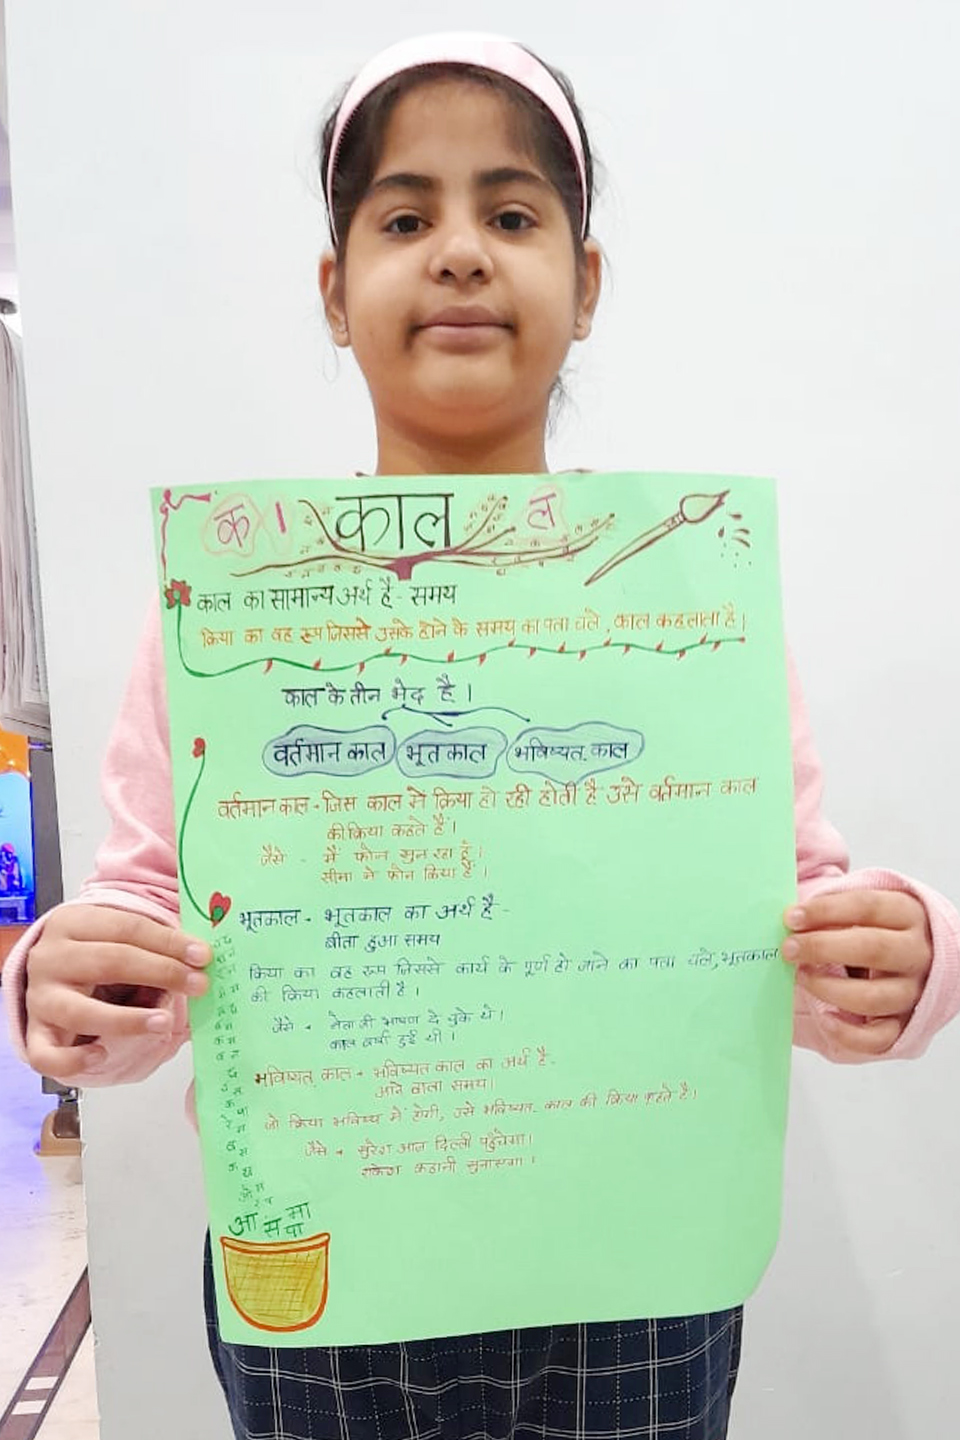 क ा काल ल
काल का सामान्य अर्थ है - समय
क्रिया का वह रूप जिससे उसके होने के समय का पता चले, काल कहलाता है।
काल के तीन भेद है।
वर्तमान काल भूत काल भविष्यत् काल
वर्तमान काल - जिस काल में क्रिया हो रही होती है उसे वर्तमान काल
की क्रिया कहते हैं।
जैसे - मैं फोन सुन रहा हूँ।
सीमा ने फोन किया है।
भूतकाल - भूतकाल का अर्थ है -
बीता हुआ समय
क्रिया का वह रूप जिससे कार्य के पूर्ण हो जाने का पता चले, भूतकाल
की क्रिया कहलाती है।
जैसे - नेता जी भाषण दे चुके थे।
काल वर्षा हुई थी।
भविष्यत् काल - भविष्यत काल का अर्थ है -
आने वाला समय।
जो क्रिया भविष्य में होगी, उसे भविष्यत् काल की क्रिया कहते है।
जैसे - सुरेश आज दिल्ली पहुँचेगा।
राकेश कहानी सुनाएगा।
आ स मा
पा